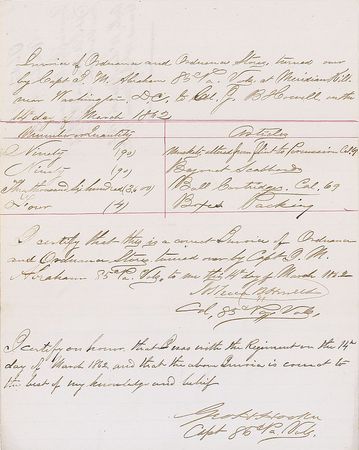 Invoice of Ordnance and Ordnance Stores, turned over
by Capt J. M. Abraham 85th Pa. Vols. at Meridian Hill
near Washington, D.C. to Col. J. B. Howell on the
14th day of March 1862
Number or Quantity Articles
Ninety (90) Muskets, altered from Flint to Percussion Cal. 69
Ninety (90) Bayonet Scabbards
Ball Cartridges, Cal. 69
Four (4) Boxes Packing
I certify that this is a correct Invoice of Ordnance
and Ordnance Stores turned over by Capt J. M.
Abraham 85th Pa. Vols. to me this 14th day of March 1862
Howell
Col, 85th Vols.
I certify on honor that I was with the Regiment on the 14th
day of March 1862 and that the above Invoice is correct to
the best of my knowledge and belief
Hooker
Capt 85th Pa. Vols.